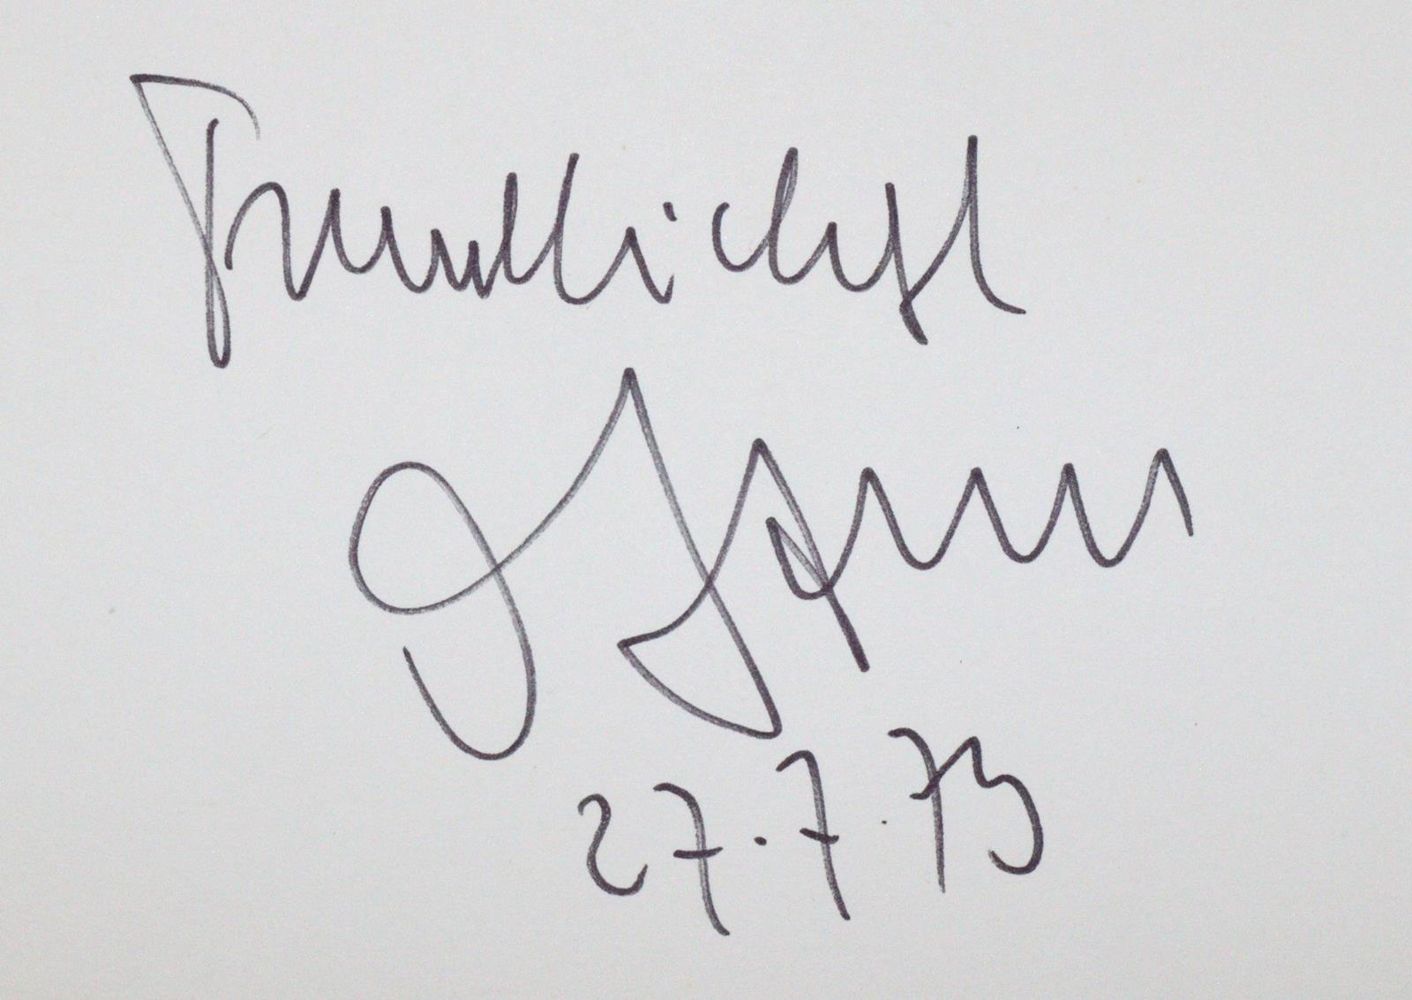 Freundlichst
27.7.73